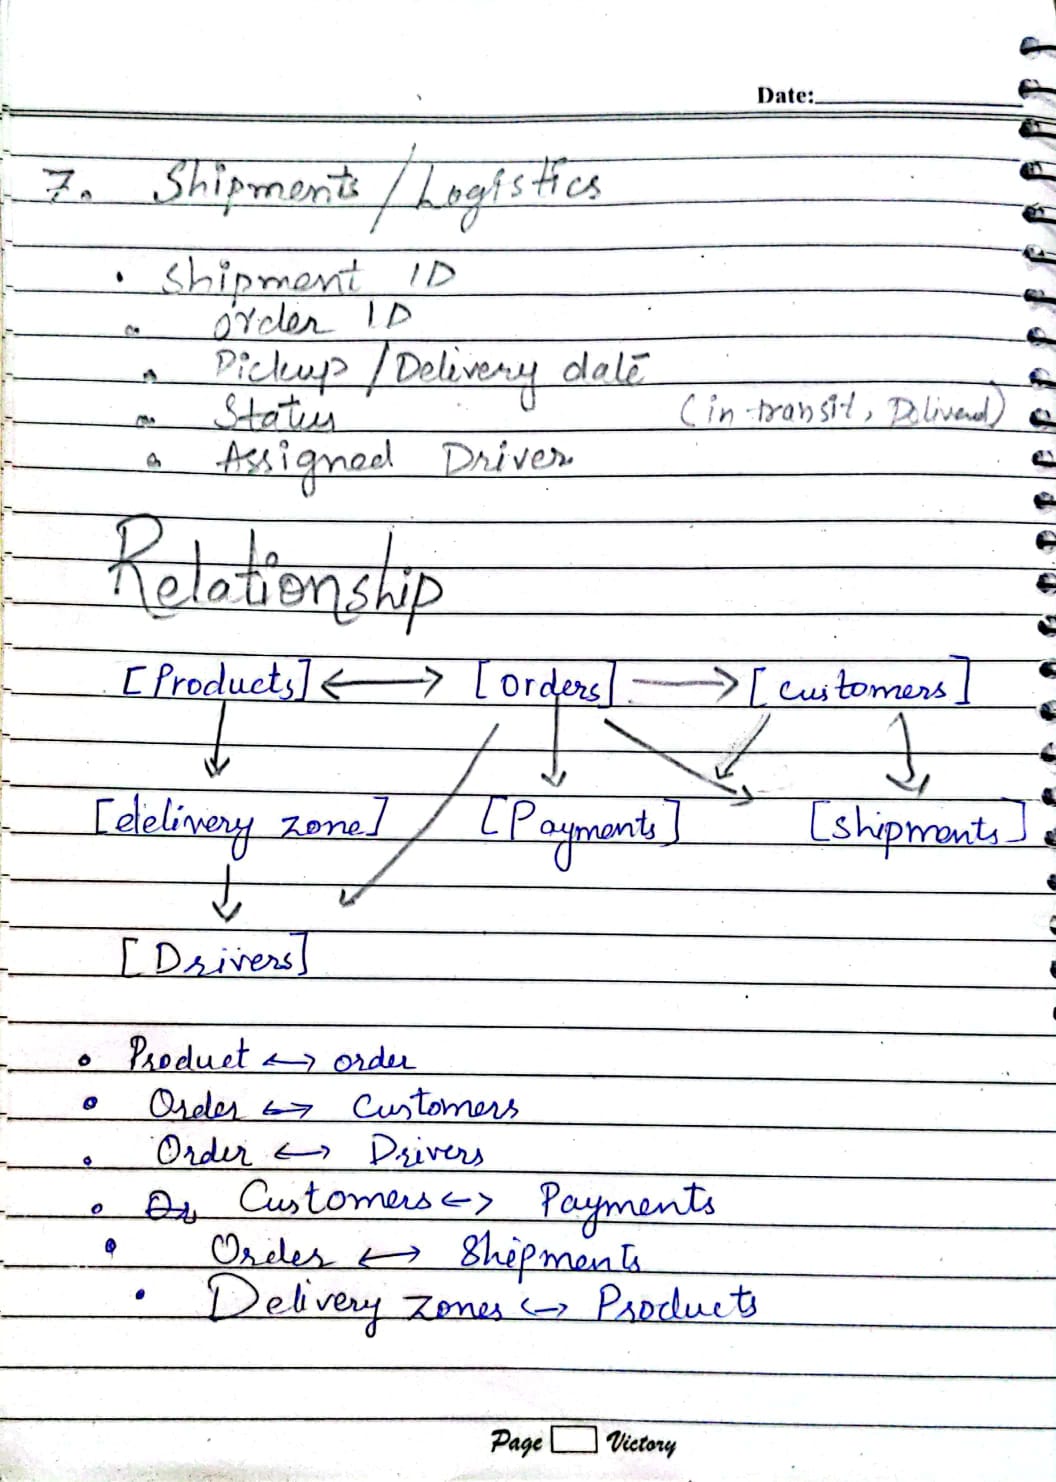 Date:
7. Shipments/Logistics
• Shipment ID
• Order ID
• Pickup/Delivery date
• Status (in-transit, Delivered)
• Assigned Driver
Relationship
[Products] ⟷ [Orders] ⟶ [customers]
[delivery zone] [Payments] [shipments]
[Drivers]
• Product ⟷ order
• Order ⟷ Customers
• Order ⟷ Drivers
• Customers <-> Payments
• Order ⟷ Shipments
• Delivery zones <-> Products
Page Victory